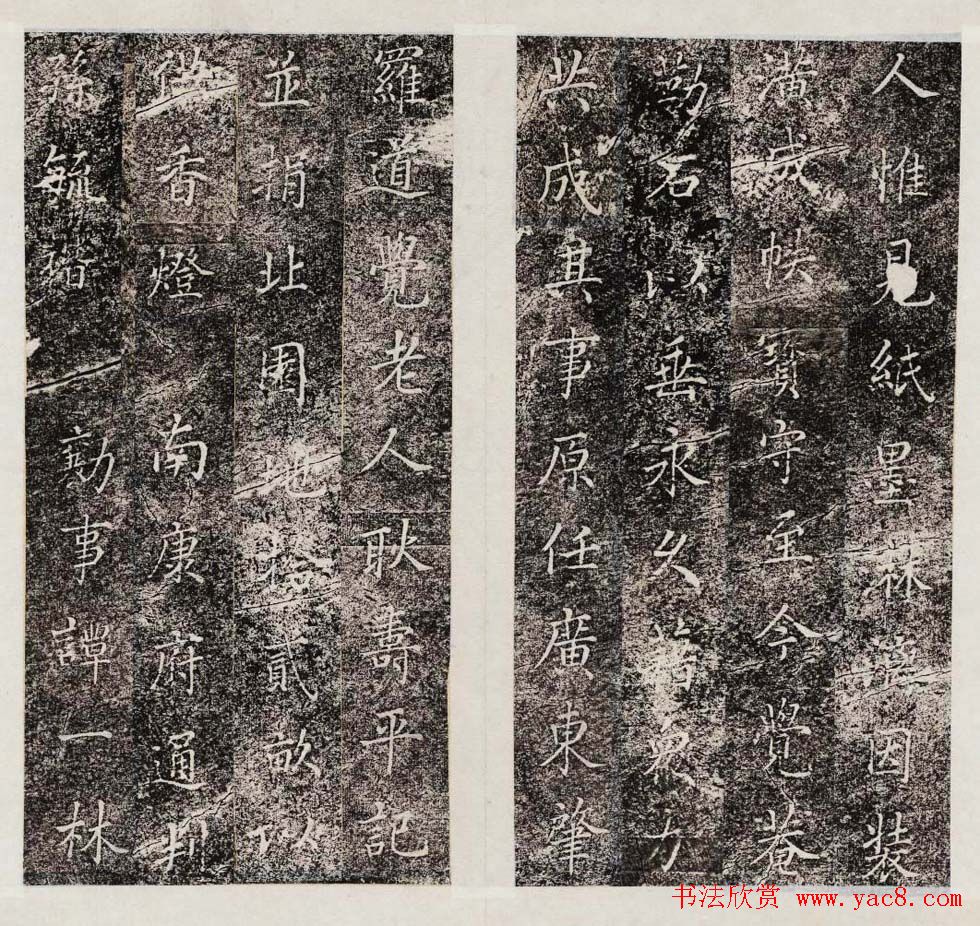 人惟見紙墨淋漓因装
潢成帙寳守至今覺菴
勒石以垂永久衆力
共成其事原任廣東肇
羅道覺老人耿壽平記
並捐北園地拾貳畝以
供香燈南康府通判
孫毓 勷事譚一林
书法欣赏 www.yac8.com